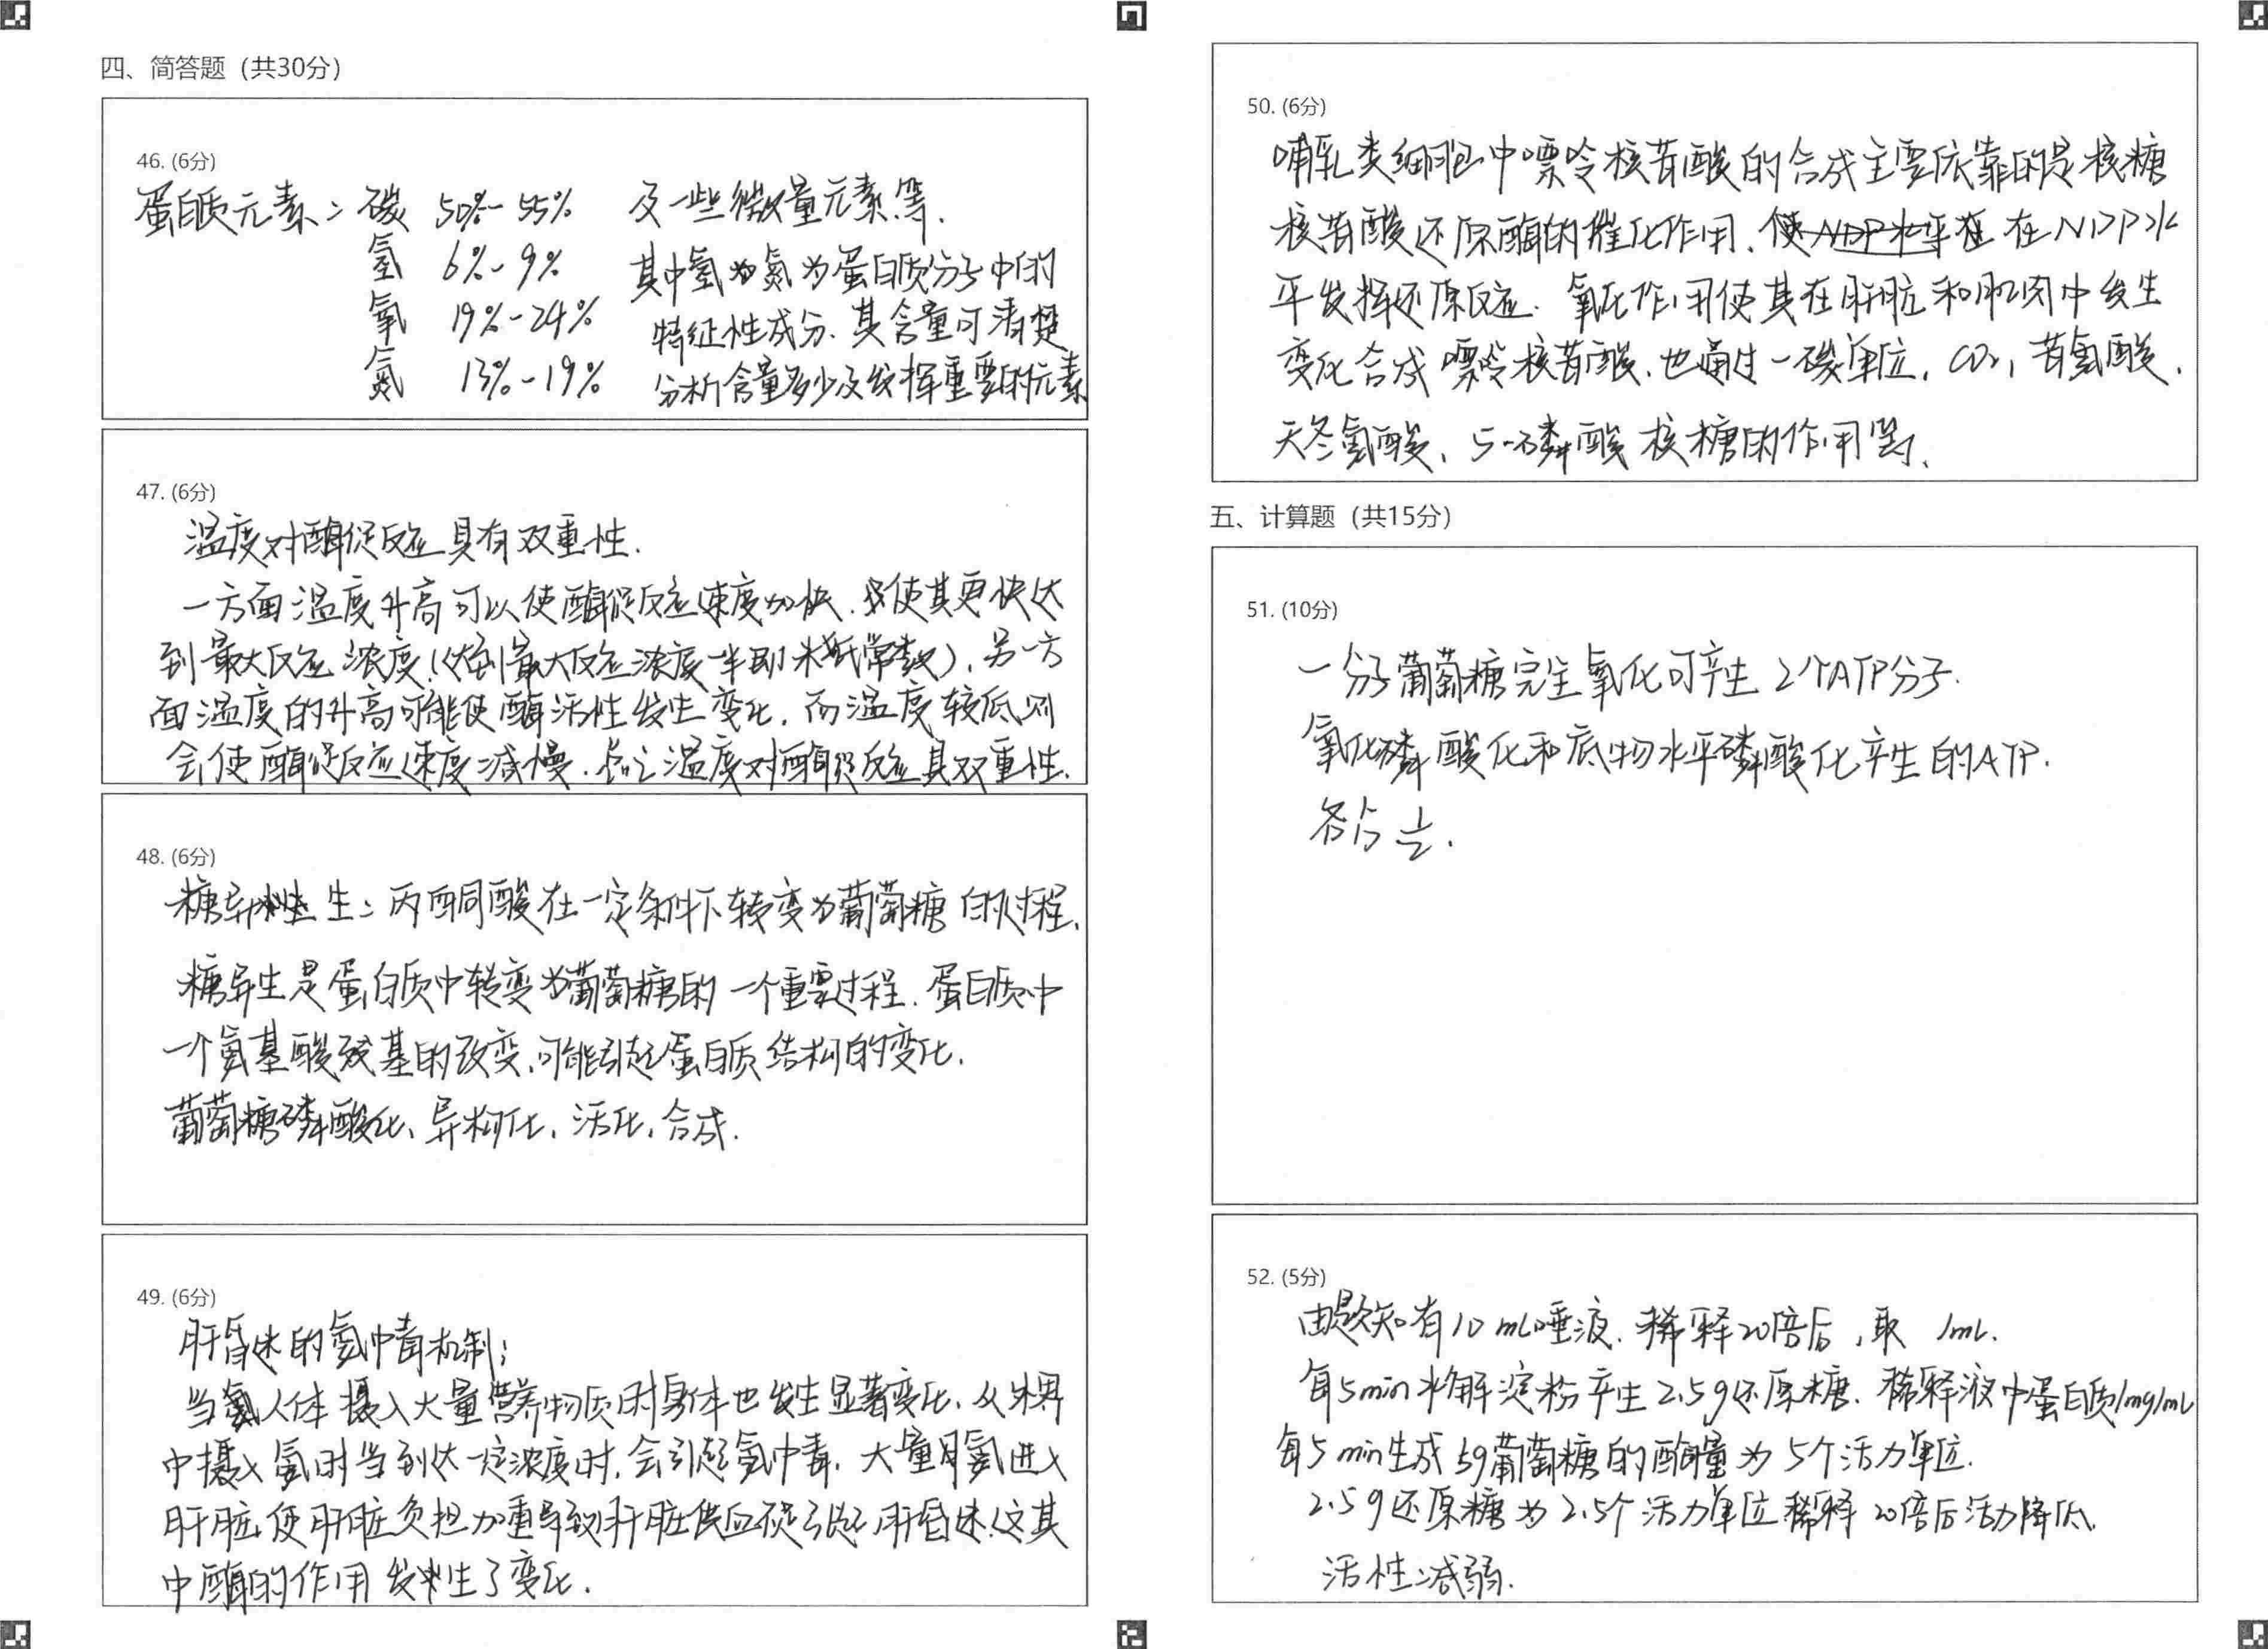 四、简答题（共30分）
46. (6分)
蛋白质元素：碳 50%-55% 及一些微量元素等.
氢 6%-9% 其中氢为氮为蛋白质分子中的
氧 19%-24% 特征性成分.其含量可清楚
氮 13%-19% 分析含量多少及发挥重要的元素
47. (6分)
温度对酶促反应具有双重性.
一方面温度升高可以使酶促反应速度加快.使其更快达
到最大反应浓度.(达到最大反应浓度一半即米氏常数),另一方
面温度的升高可能使酶活性发生变化,而温度较低则
会使酶促反应速度减慢.总之温度对酶促反应具双重性.
48. (6分)
糖异生:丙酮酸在一定条件下转变为葡萄糖的过程.
糖异生是蛋白质中转变为葡萄糖的一个重要过程.蛋白质中
一个氨基酸残基的改变,可能引起蛋白质结构的变化.
葡萄糖磷酸化、异构化,活化,合成.
49. (6分)
肝昏迷的氨中毒机制;
当人体摄入大量营养物质时身体也发生显著变化,从外界
中摄入氨时当到达一定浓度时,会引起氨中毒.大量氨进入
肝脏,使肝脏负担加重导致肝脏供血 引起肝昏迷.这其
中酶的作用发生了变化.
50. (6分)
哺乳类细胞中嘌呤核苷酸的合成主要依靠的是核糖
核苷酸还原酶的催化作用.使NDP水平在 在NDP水
平发挥还原反应.氧化作用使其在肝脏和肌肉中发生
变化合成嘌呤核苷酸.也通过一碳单位,CO₂,苷氨酸,
天冬氨酸、5-磷酸核糖的作用等.
五、计算题（共15分）
51. (10分)
一分子葡萄糖完全氧化可产生2个ATP分子.
氧化磷酸化和底物水平磷酸化产生的ATP.
各占1/2.
52. (5分)
由题知有10mL唾液.稀释20倍后,取 1mL.
每5min水解淀粉产生2.5g还原糖.稀释液中蛋白质1mg/mL
每5min生成5g葡萄糖的酶量为5个活力单位.
2.5g还原糖为2.5个活力单位稀释20倍后活力降低.
活性减弱.